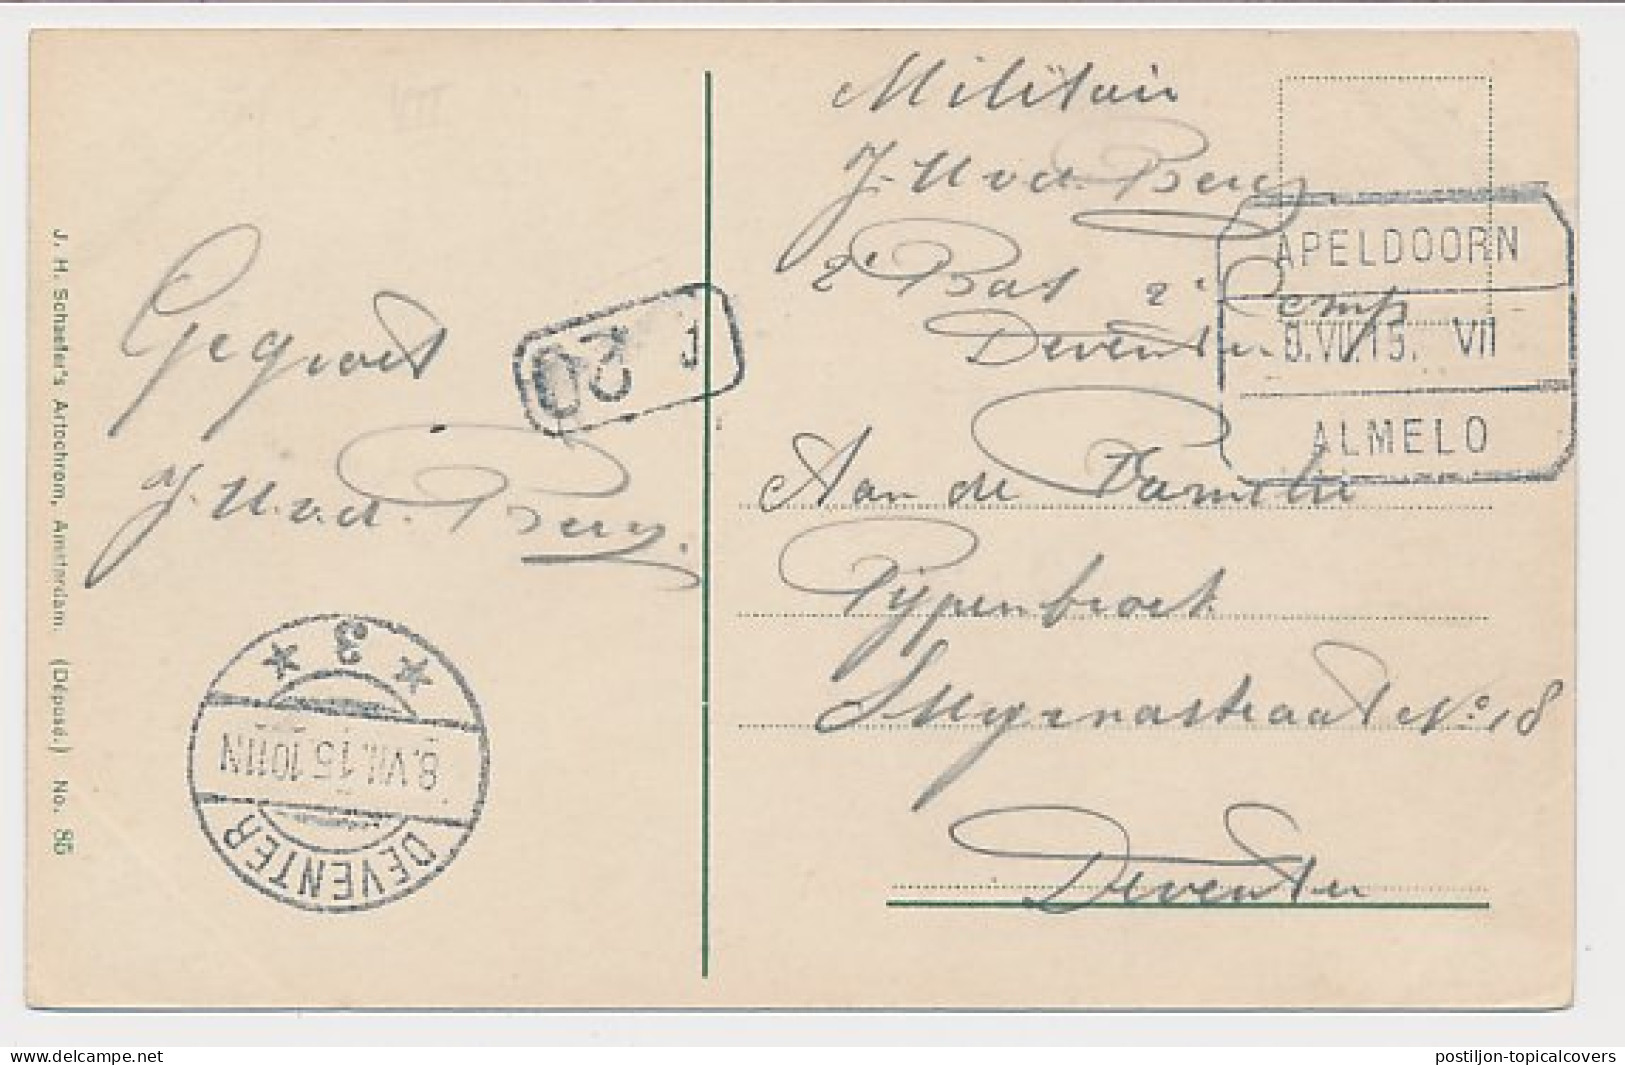 Militair
J. H. v. d. Berg
2e Bat 2e Comp
Deventer
APELDOORN
8.VII.15. VII
ALMELO
Gegroet
J. H. v. d. Berg.
20 J
Aan de Familie
Pijpenbroek
Smyrnastraat No 18
Deventer
DEVENTER
8.VII.15.1011N
* 3 *
J. H. Schaefer's Artochrom, Amsterdam. (Déposé.) No. 85
VII
postiljon-topicalcovers
www.delcampe.net